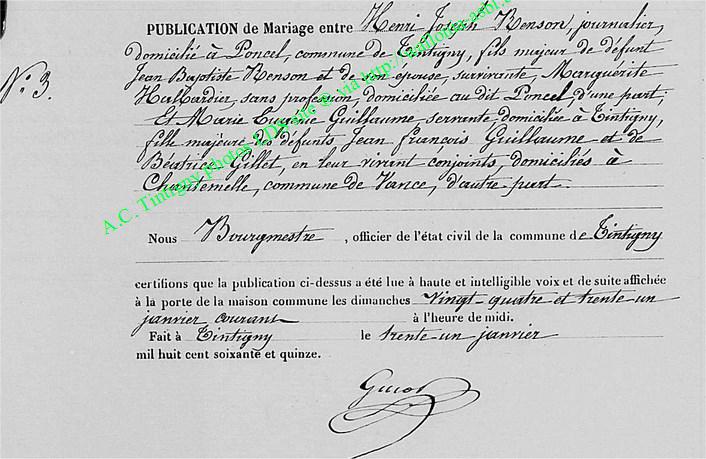 PUBLICATION de Mariage entre Henri Joseph Renson, journalier,
domiciliée à Poncel, commune de Tintigny, fils majeur de défunt
Jean Baptiste Renson et de son épouse, survivante, Marguérite
N° 3.
Hallardier, sans profession, domiciliée au dit Poncel, d'une part;
Et Marie Eugénie Guillaume, servante domiciliée à Tintigny,
fille majeure des défunts Jean François Guillaume et de
Béatrice Gillet, en leur vivant conjoints, domiciliés à
Chantemelle, commune de Vance, d'autre part.
A.C. Tintigny photos LDS site @ via http://
Nous Bourgmestre, officier de l'état civil de la commune de Tintigny
certifions que la publication ci-dessus a été lue à haute et intelligible voix et de suite affichée
à la porte de la maison commune les dimanches vingt-quatre et trente un
janvier courant à l'heure de midi.
Fait à Tintigny le trente un janvier
mil huit cent soixante et quinze.